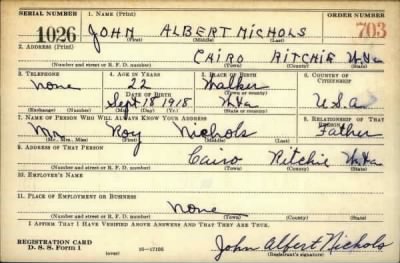 SERIAL NUMBER 1. NAME (Print) ORDER NUMBER
1026 JOHN ALBERT NICHOLS 703
(First) (Middle) (Last)
2. ADDRESS (Print)
CAIRO RITCHIE W.Va
(Number and street or R. F. D. number) (Town) (County) (State)
3. TELEPHONE 4. AGE IN YEARS 5. PLACE OF BIRTH 6. COUNTRY OF CITIZENSHIP
None 22 Walker
DATE OF BIRTH (Town or county)
Sept 18 1918 W.Va U.S.a
(Exchange) (Number) (Mo.) (Day) (Yr.) (State or country)
7. NAME OF PERSON WHO WILL ALWAYS KNOW YOUR ADDRESS 8. RELATIONSHIP OF THAT PERSON
Mr. Roy Nichols Father
(Mr., Mrs., Miss) (First) (Middle) (Last)
9. ADDRESS OF THAT PERSON
Cairo Ritchie W.Va
(Number and street or R. F. D. number) (Town) (County) (State)
10. EMPLOYER'S NAME
11. PLACE OF EMPLOYMENT OR BUSINESS
None
(Number and street or R. F. D. number) (Town) (County) (State)
I AFFIRM THAT I HAVE VERIFIED ABOVE ANSWERS AND THAT THEY ARE TRUE.
REGISTRATION CARD
D. S. S. Form 1 (over) 16—17105 John Albert Nichols
(Registrant's signature)